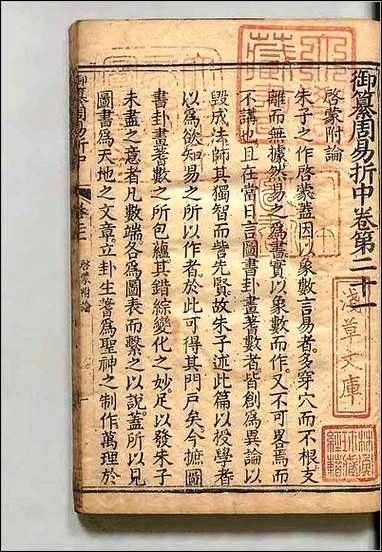 御纂周易折中卷第二十一
啓蒙附論
朱子之作啓蒙蓋因以象數言易者多穿穴而不根支
離而無據然易之爲書實以象數而作又不可畧焉而
不講也且在當日言圖書卦畫蓍數者皆創爲異論以
毀成法師其獨智而訾先賢故朱子述此篇以授學者
以爲欲知易之所以作者於此可得其門戶矣今摭圖
書卦畫蓍數之所包蘊其錯綜變化之妙足以發朱子
未盡之意者凡數端各爲圖表而繫之以說蓋所以見
圖書爲天地之文章立卦生蓍爲聖神之制作萬理於
御纂周易折中
啓蒙附論
淺草文庫